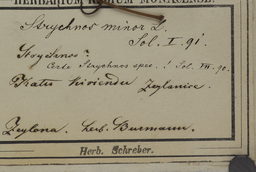 HERBARIUM REGIUM MONACENSE.
Strychnos minor L.
Sol. I. 91.
Strychnos?
Certe Strychnos spec.! Sol. VII. 90.
Katu Kirindu Zeylanice.
Zeylona. herb. Burmann.
Herb. Schreber.